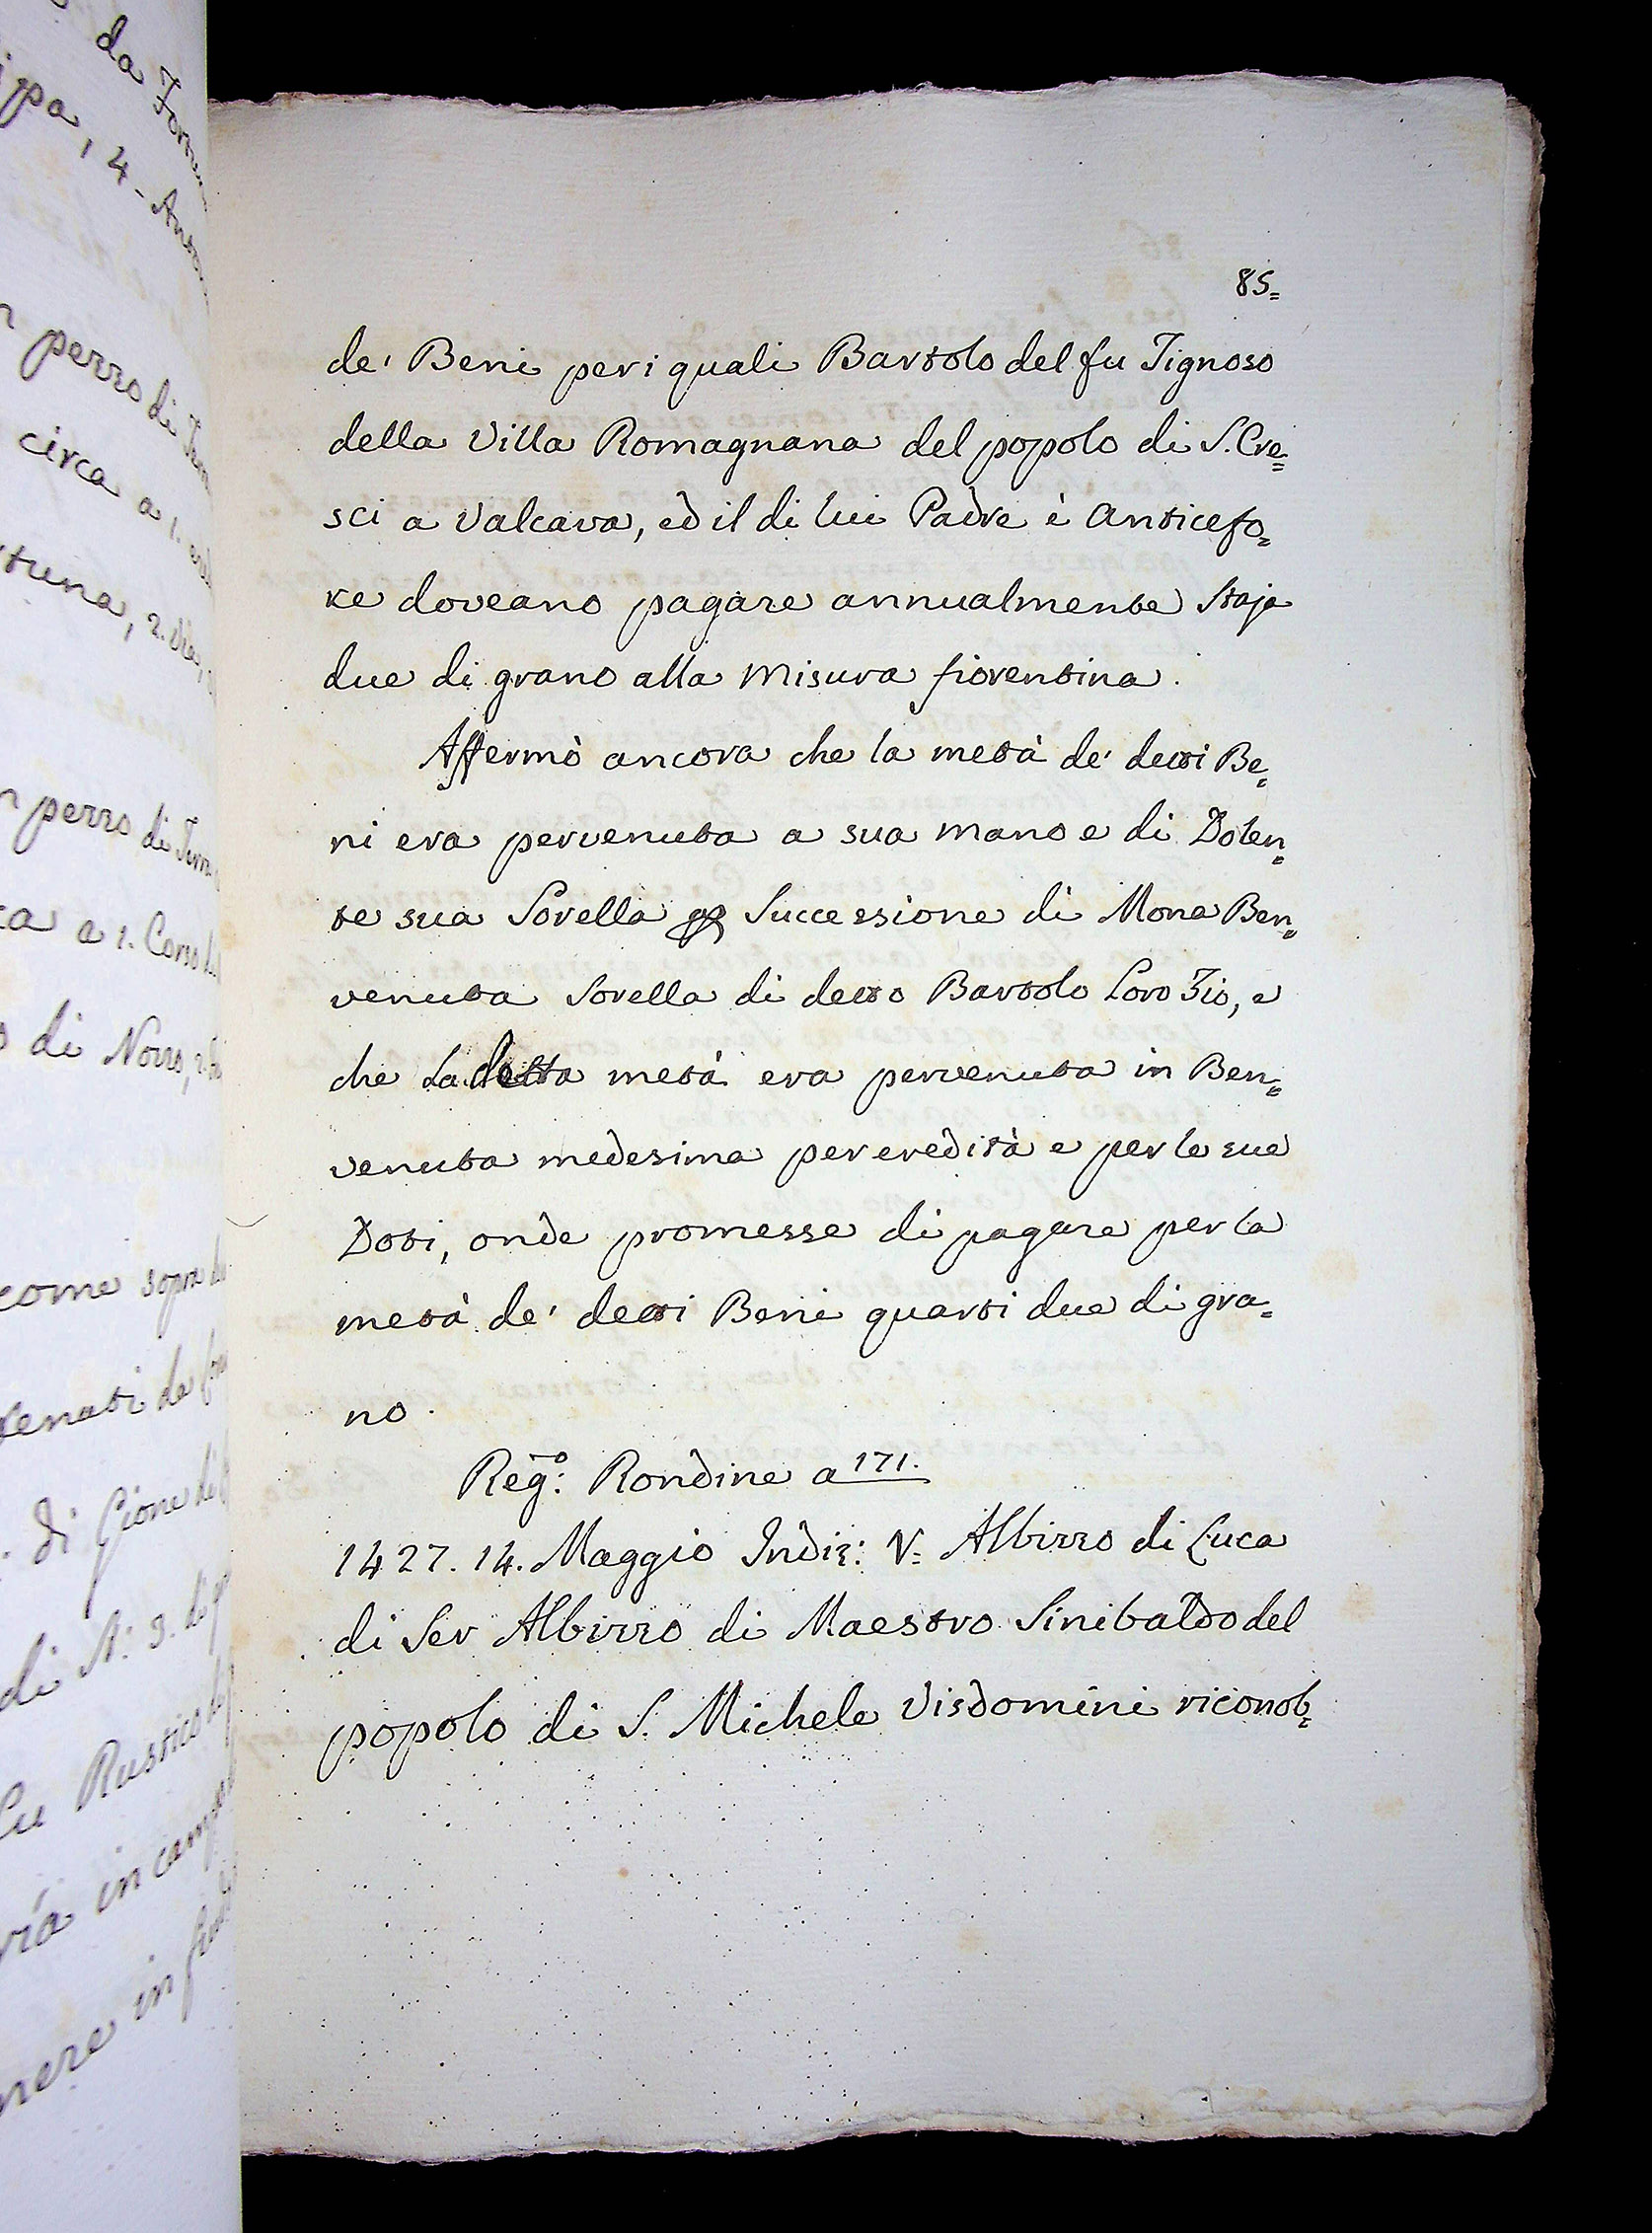 85=
de' Beni per i quali Bartolo del fu Tignoso
della Villa Romagnana del popolo di S. Cre=
sci a Valcava, ed il di lui Padre è Anticesso=
re doveano pagare annualmente Staja
due di grano alla Misura fiorentina.
Affermò ancora che la metà de' detti Be=
ni era pervenuta a sua mano e di Dolen=
te sua Sorella Successione di Mona Ben=
venuta Sorella di detto Bartolo Loro Zio, e
che La detta metà era pervenuta in Ben=
venuta medesima per eredità e per le sue
Doti, onde promesse di pagare per la
metà de' detti Beni quarti due di gra=
no.
Reg.o: Rondine a 171.
1427. 14. Maggio Indiz: V= Albizzo di Luca
di Ser Albizzo di Maestro Sinibaldo del
popolo di S. Michele Visdomini riconob=
da
ipa, 4-
perzo di
circa a 1.
tuna, 2.
perzo di
ca a 1. Corso
di Nozzo, 2.
come sopra
di Cione di
di N: 3. di
Rustico
in
in